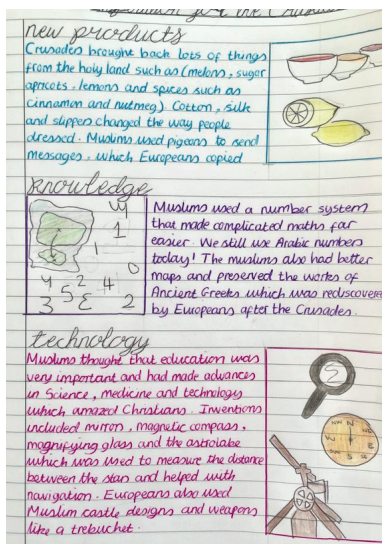 new products
Crusades brought back lots of things
from the holy land such as (melons, sugar
apricots, lemons and spices such as
cinnamon and nutmeg). Cotton, silk
and slippers changed the way people
dressed. Muslims used pigeons to send
messages, which Europeans copied
knowledge
Muslims used a number system
that made complicated maths far
easier. We still use Arabic numbers
today! The muslims also had better
maps and preserved the works of
Ancient Greeks which was rediscovered
by Europeans after the Crusades.
technology
Muslims thought that education was
very important and had made advances
in Science, medicine and technology
which amazed Christians. Inventions
included mirrors, magnetic compass,
magnifying glass and the astrolabe
which was used to measure the distance
between the stars and helped with
navigation. Europeans also used
Muslim castle designs and weapons
like a trebuchet.